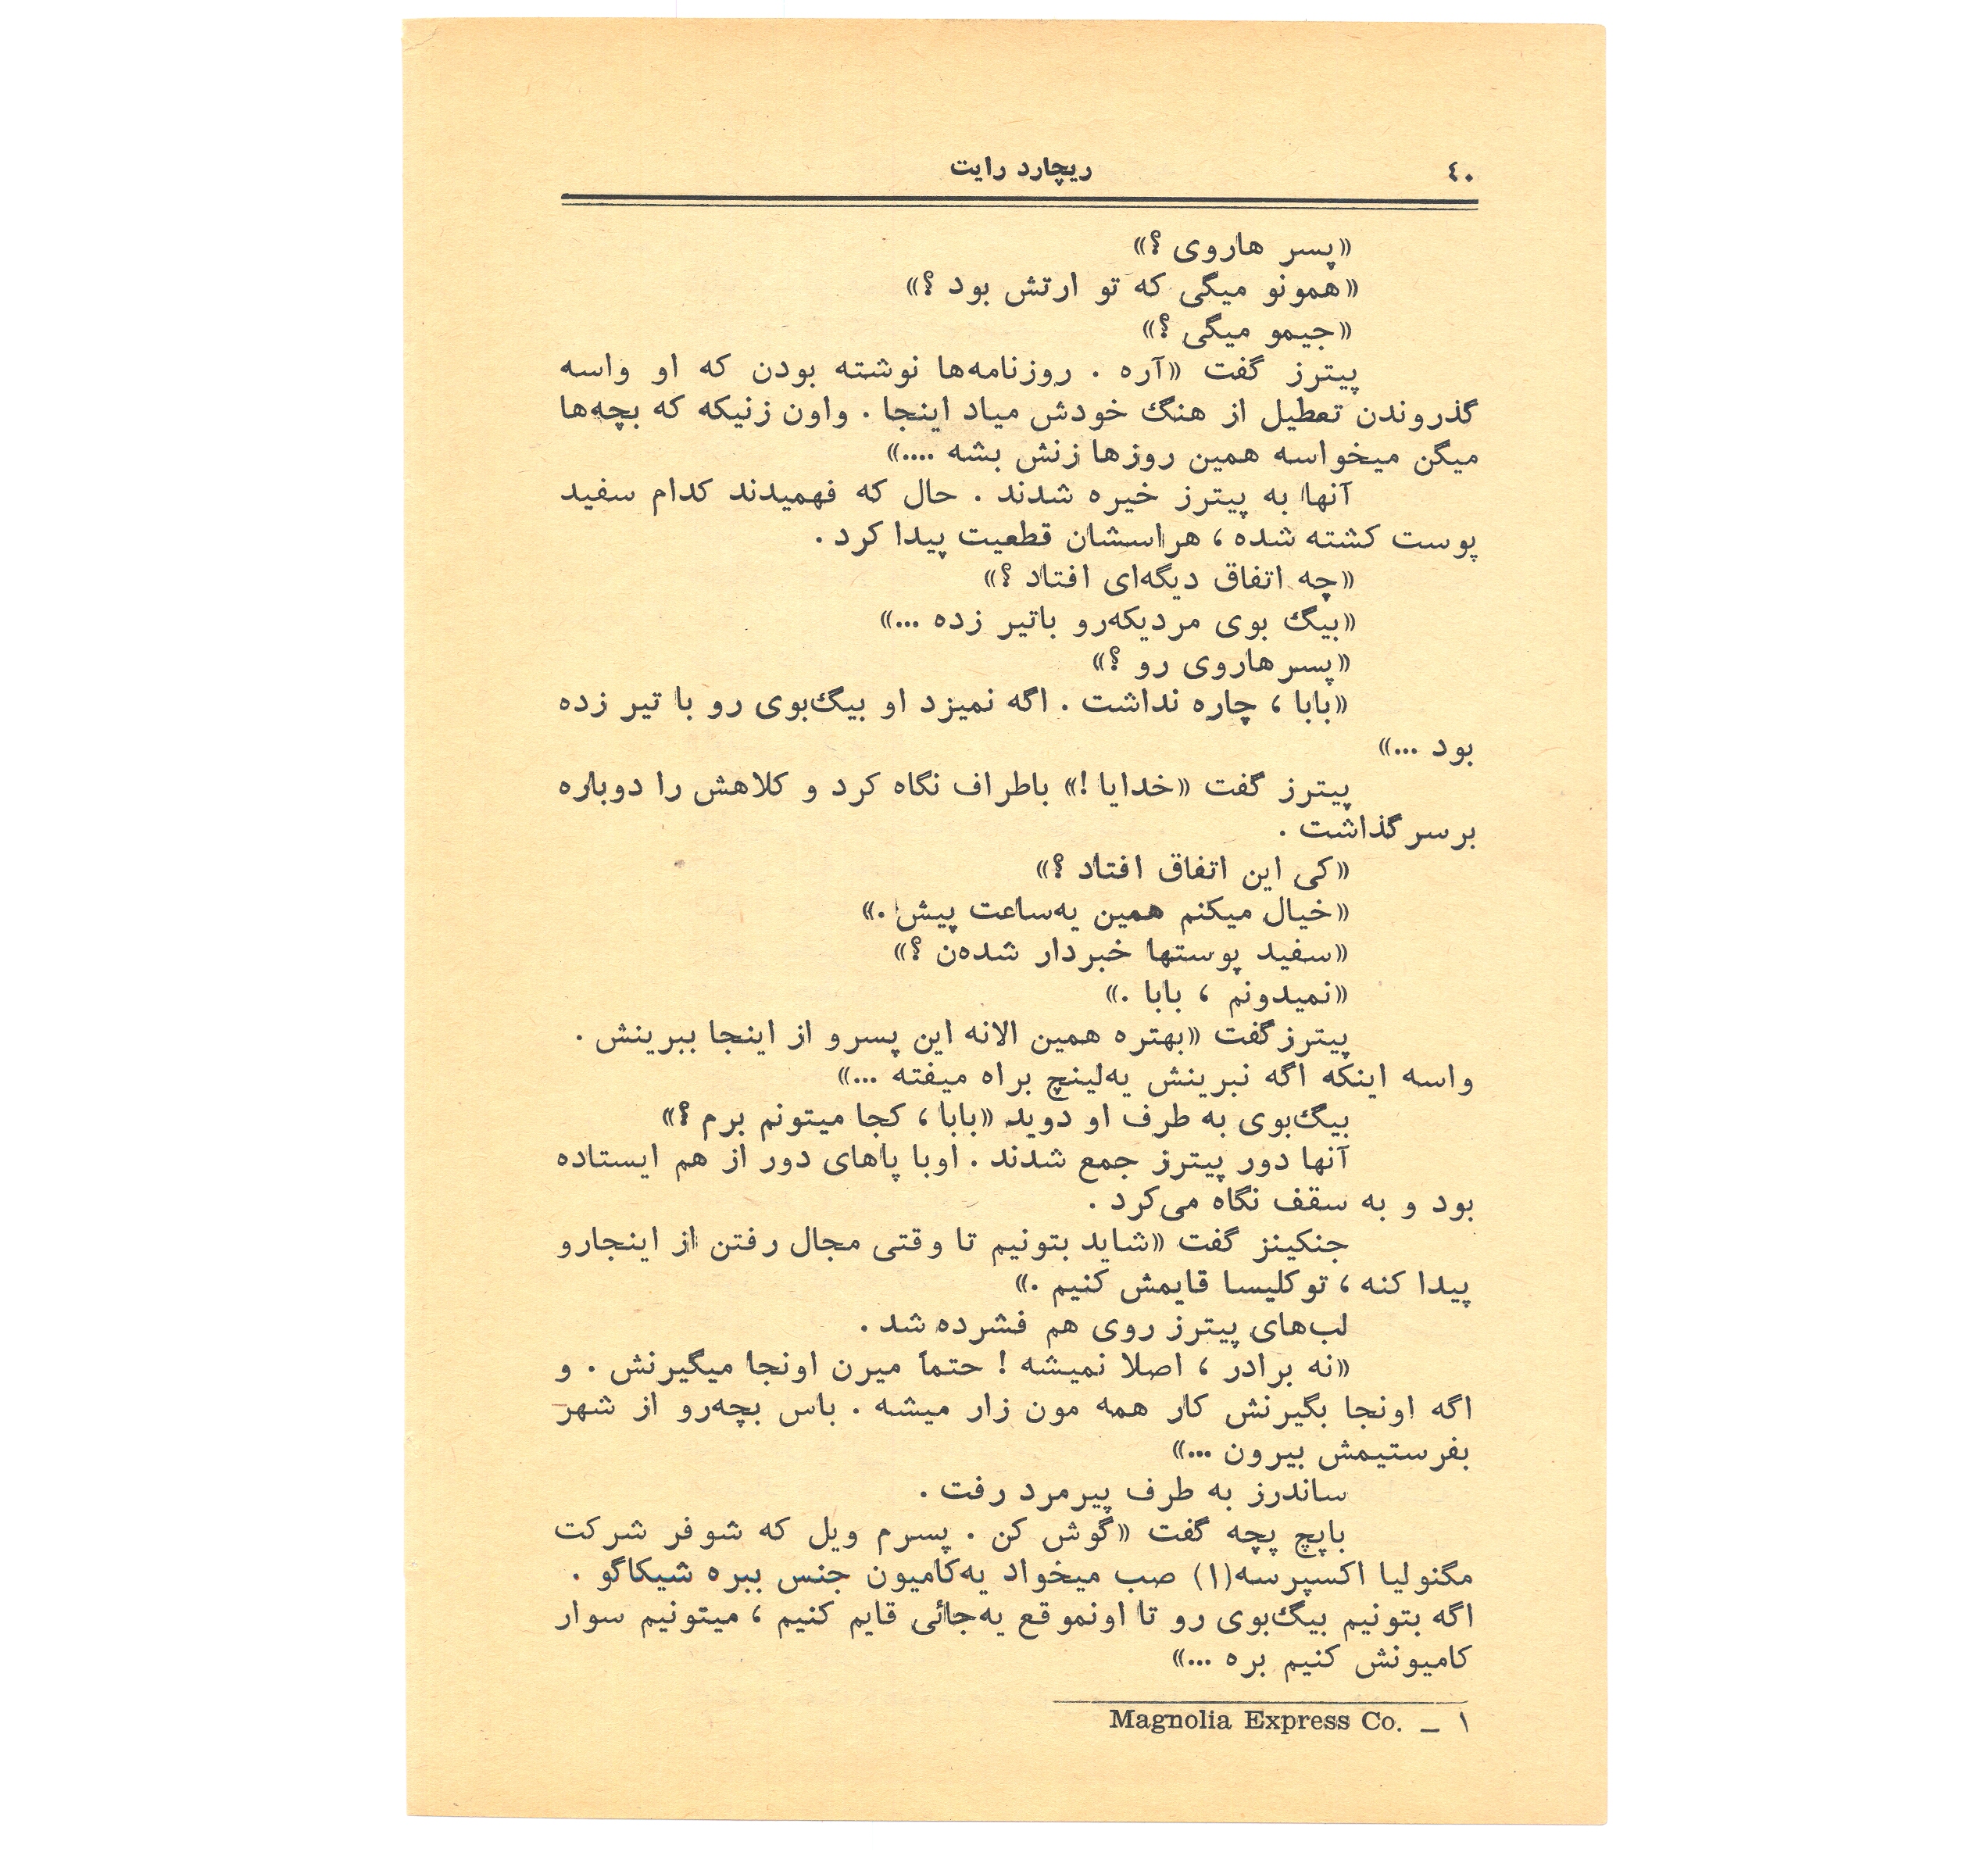 ٤٠
ریچارد رایت
«پسر هاروی ؟»
«همونو میگی که تو ارتش بود ؟»
«جیمو میگی ؟»
پیترز گفت «آره . روزنامه‌ها نوشته بودن که او واسه
گذروندن تعطیل از هنگ خودش میاد اینجا . واون زنیکه که بچه‌ها
میگن میخواسه همین روزها زنش بشه ....»
آنها به پیترز خیره شدند . حال که فهمیدند کدام سفید
پوست کشته شده ، هراسشان قطعیت پیدا کرد .
«چه اتفاق دیگه‌ای افتاد ؟»
«بیگ بوی مردیکه‌رو باتیر زده ...»
«پسرهاروی رو ؟»
«بابا ، چاره نداشت . اگه نمیزد او بیگ‌بوی رو با تیر زده
بود ...»
پیترز گفت «خدایا !» باطراف نگاه کرد و کلاهش را دوباره
برسر گذاشت .
«کی این اتفاق افتاد ؟»
«خیال میکنم همین یه‌ساعت پیش .»
«سفید پوستها خبردار شده‌ن ؟»
«نمیدونم ، بابا .»
پیترز گفت «بهتره همین الانه این پسرو از اینجا ببرینش .
واسه اینکه اگه نبرینش یه‌لینچ براه میفته ...»
بیگ‌بوی به طرف او دوید «بابا ، کجا میتونم برم ؟»
آنها دور پیترز جمع شدند . اوبا پاهای دور از هم ایستاده
بود و به سقف نگاه می‌کرد .
جنکینز گفت «شاید بتونیم تا وقتی مجال رفتن از اینجارو
پیدا کنه ، توکلیسا قایمش کنیم .»
لب‌های پیترز روی هم فشرده شد .
«نه برادر ، اصلا نمیشه ! حتماً میرن اونجا میگیرنش . و
اگه اونجا بگیرنش کار همه مون زار میشه . باس بچه‌رو از شهر
بفرستیمش بیرون ...»
ساندرز به طرف پیرمرد رفت .
باپچ پچه گفت «گوش کن . پسرم ویل که شوفر شرکت
مگنولیا اکسپرسه(۱) صب میخواد یه‌کامیون جنس ببره شیکاگو .
اگه بتونیم بیگ‌بوی رو تا اونموقع یه‌جائی قایم کنیم ، میتونیم سوار
کامیونش کنیم بره ...»
۱ – Magnolia Express Co.